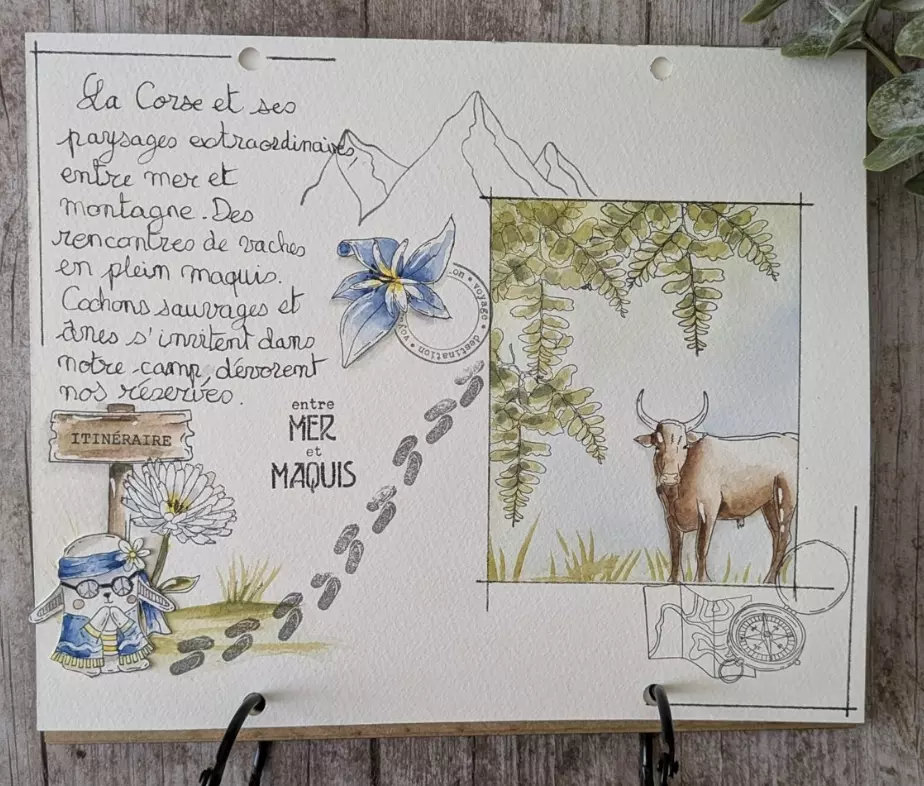 La Corse et ses
paysages extraordinaires
entre mer et
montagne. Des
rencontres de vaches
en plein maquis.
Cochons sauvages et
ânes s'invitent dans
notre camp, dévorent
nos réserves.
ITINÉRAIRE
entre
MER
et
MAQUIS
on • voyage • destination • voyage